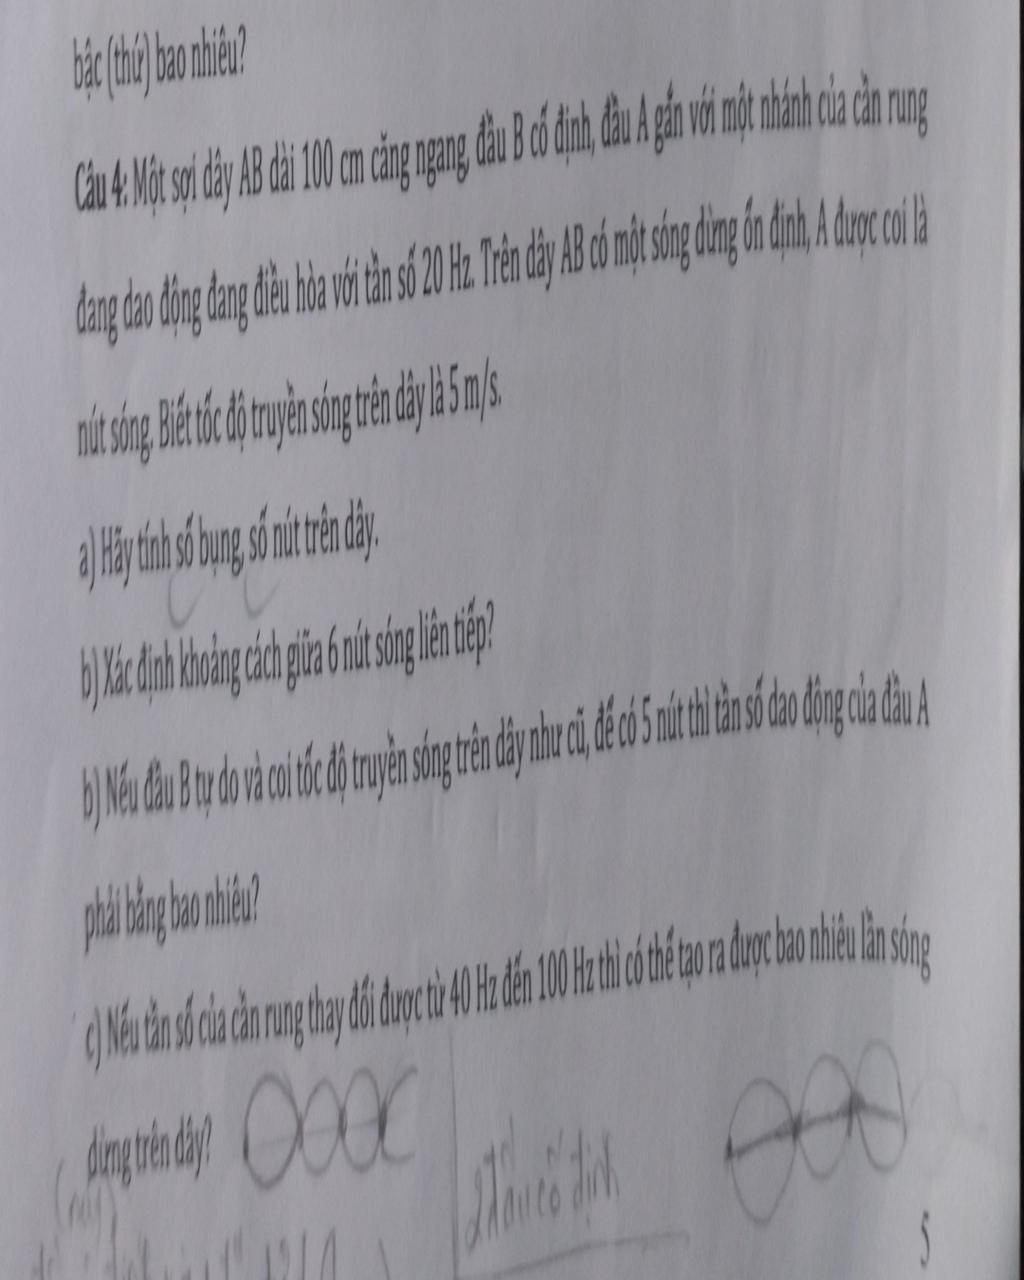 bậc (thứ) bao nhiêu?
Câu 4: Một sợi dây AB dài 100 cm căng ngang, đầu B cố định, đầu A gắn với một nhánh của cần rung
đang dao động đang điều hòa với tần số 20 Hz. Trên dây AB có một sóng dừng ổn định, A được coi là
nút sóng. Biết tốc độ truyền sóng trên dây là 5 m/s.
a) Hãy tính số bụng, số nút trên dây.
b) Xác định khoảng cách giữa 6 nút sóng liên tiếp?
b) Nếu đầu B tự do và coi tốc độ truyền sóng trên dây như cũ, để có 5 nút thì tần số dao động của đầu A
phải bằng bao nhiêu?
c) Nếu tần số của cần rung thay đổi được từ 40 Hz đến 100 Hz thì có thể tạo ra được bao nhiêu lần sóng
dừng trên dây?
2 đầu cố định
5